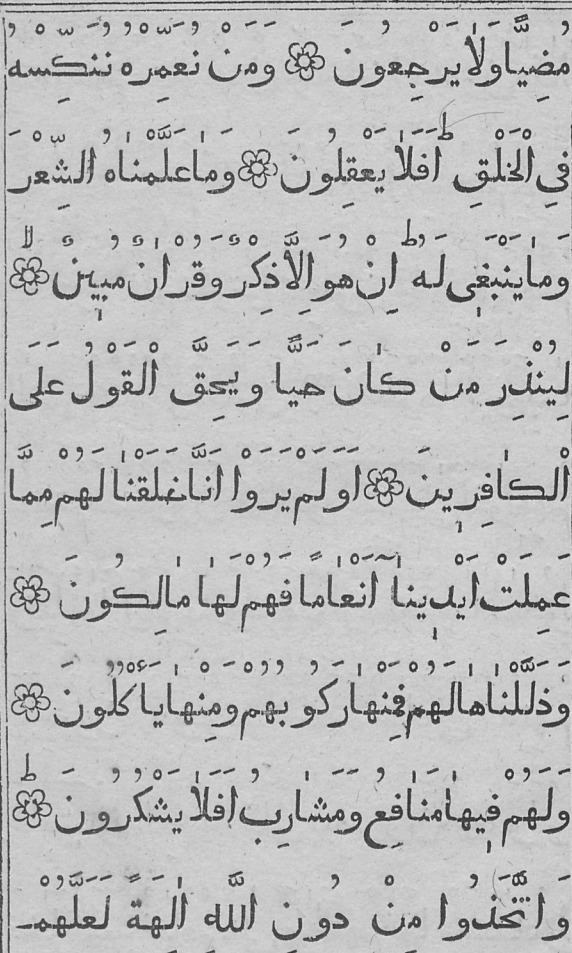 مُضِيًّا وَلَا يَرْجِعُونَ ۞ وَمَنْ نُعَمِّرْهُ نُنَكِّسْهُ
فِي الْخَلْقِ ط اَفَلَا يَعْقِلُونَ ۞ وَمَا عَلَّمْنَاهُ الشِّعْرَ
وَمَا يَنْبَغِي لَهُ ط اِنْ هُوَ اِلَّا ذِكْرٌ وَقُرْاٰنٌ مُبِينٌ لا ۞
لِيُنْذِرَ مَنْ كَانَ حَيًّا وَيَحِقَّ الْقَوْلُ عَلَى
الْكَافِرِينَ ۞ اَوَلَمْ يَرَوْا اَنَّا خَلَقْنَا لَهُمْ مِمَّا
عَمِلَتْ اَيْدِينَا اَنْعَامًا فَهُمْ لَهَا مَالِكُونَ ۞
وَذَلَّلْنَاهَا لَهُمْ فَمِنْهَا رَكُوبُهُمْ وَمِنْهَا يَاْكُلُونَ ۞
وَلَهُمْ فِيهَا مَنَافِعُ وَمَشَارِبُ اَفَلَا يَشْكُرُونَ ط ۞
وَاتَّخَذُوا مِنْ دُونِ اللَّهِ اٰلِهَةً لَعَلَّهُمْ